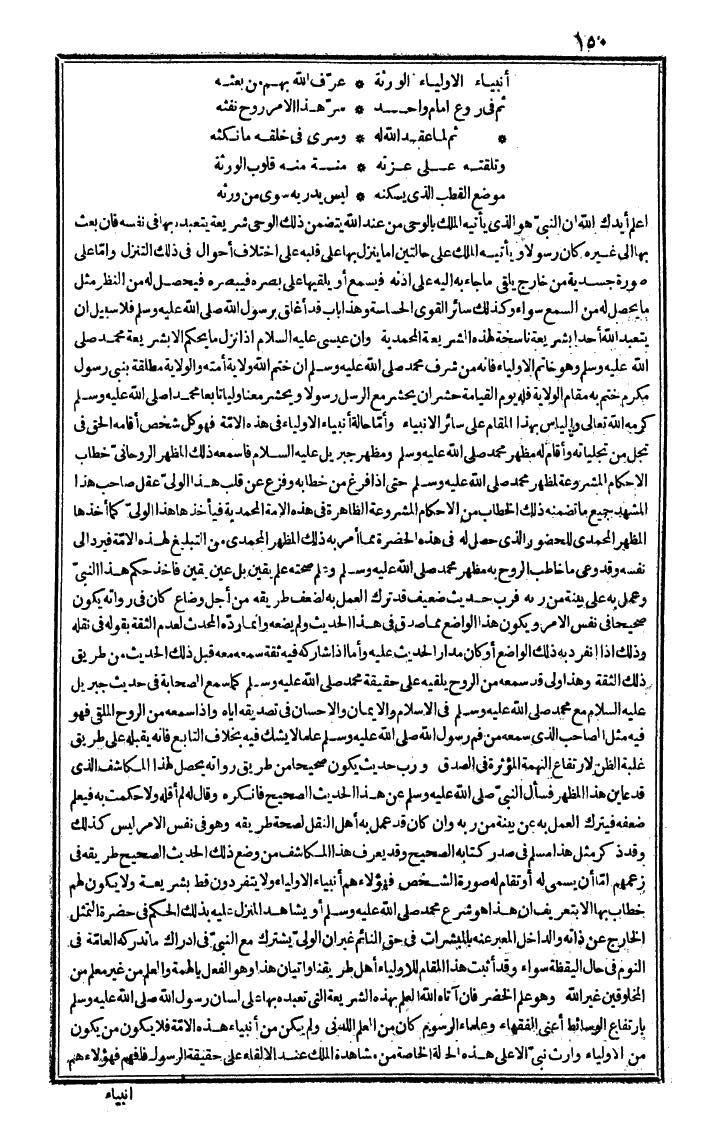 ١٥٠
أنبياء الاولياء الورثة * عرّف الله بهم من بعثه
ثم فى روع امام واحد * سرّ هذا الامر روح نفثه
* ثم لما عقد الله له * وسرى فى خلقه ما نكثه
وتلقته على عزته * منة منه قلوب الورثة
موضع القطب الذى يسكنه * ليس يدريه سوى من ورثه
اعلم أيدك الله ان النبىّ هو الذى يأتيه الملك بالوحى من عند الله يتضمن ذلك الوحى شريعة يتعبد بها فى نفسه فان بعث
بها الى غيره كان رسولا ويأتيه الملك على حالتين اما ينزل بها على قلبه على اختلاف أحوال فى ذلك التنزل واما على
صورة جسدية من خارج يلقى ما جاء به اليه على اذنه فيسمع أو يلقيها على بصره فيبصره فيحصل له من النظر مثل
ما يحصل له من السمع سواء وكذلك سائر القوى الحساسة وهذا باب قد أغلق برسول الله صلى الله عليه وسلم فلا سبيل ان
يتعبد الله أحدا بشريعة ناسخة لهذه الشريعة المحمدية وان عيسى عليه السلام اذا نزل ما يحكم الا بشريعة محمد صلى
الله عليه وسلم وهو خاتم الاولياء فانه من شرف محمد صلى الله عليه وسلم ان ختم الله ولاية أمته والولاية مطلقة بنبى رسول
مكرم ختم به مقام الولاية فله يوم القيامة حشران يحشر مع الرسل رسولا ويحشر معنا وليا تابعا محمدا صلى الله عليه وسلم
كرمه الله تعالى والياس بهذا المقام على سائر الانبياء وأمّا حالة أنبياء الاولياء فى هذه الامّة فهو كل شخص أقامه الحق فى
تجل من تجلياته وأقام له مظهر محمد صلى الله عليه وسلم ومظهر جبريل عليه السلام فاسمعه ذلك المظهر الروحانىّ خطاب
الاحكام المشروعة لمظهر محمد صلى الله عليه وسلم حتى اذا فرغ من خطابه وفزع عن قلب هذا الولىّ عقل صاحب هذا
المشهد جميع ما تضمنه ذلك الخطاب من الاحكام المشروعة الظاهرة فى هذه الامة المحمدية فيأخذها هذا الولىّ كما أخذها
المظهر المحمدى للحضور الذى حصل له فى هذه الحضرة مما أمر به ذلك المظهر المحمدى من التبليغ لهذه الامّة فيرد الى
نفسه وقد وعى ما خاطب الروح به مظهر محمد صلى الله عليه وسلم وعلم صحته علم يقين بل عين يقين فاخذ حكم هذا النبىّ
وعمل به على بينة من ربه فرب حديث ضعيف قد ترك العمل به لضعف طريقه من أجل وضاع كان فى رواته يكون
صحيحا فى نفس الامر ويكون هذا الواضع مما صدق فى هذا الحديث ولم يضعه وانما ردّه المحدث لعدم الثقة بقوله فى نقله
وذلك اذا انفرد به ذلك الواضع أو كان مدار الحديث عليه وأما اذا شاركه فيه ثقة سمعه معه قبل ذلك الحديث من طريق
ذلك الثقة وهذا ولى قد سمعه من الروح يلقيه على حقيقة محمد صلى الله عليه وسلم كما سمع الصحابة فى حديث جبريل
عليه السلام مع محمد صلى الله عليه وسلم فى الاسلام والايمان والاحسان فى تصديقه اياه واذا سمعه من الروح الملقى فهو
فيه مثل الصاحب الذى سمعه من فم رسول الله صلى الله عليه وسلم علما لا يشك فيه بخلاف التابع فانه يقبله على طريق
غلبة الظن لارتفاع التهمة المؤثرة فى الصدق ورب حديث يكون صحيحا من طريق رواته يحصل لهذا المكاشف الذى
قد عاين هذا المظهر فسأل النبىّ صلى الله عليه وسلم عن هذا الحديث الصحيح فانكره وقال له لم أقله ولا حكمت به فيعلم
ضعفه فيترك العمل به عن بينة من ربه وان كان قد عمل به أهل النقل لصحة طريقه وهو فى نفس الامر ليس كذلك
وقد ذكر مثل هذا مسلم فى صدر كتابه الصحيح وقد يعرف هذا المكاشف من وضع ذلك الحديث الصحيح طريقه فى
زعمهم امّا أن يسمى له أو تقام له صورة الشخص فهؤلاء هم أنبياء الاولياء ولا يتفردون قط بشريعة ولا يكون لهم
خطاب بها الا بتعريف ان هذا هو شرع محمد صلى الله عليه وسلم أو يشاهد المنزل عليه بذلك الحكم فى حضرة التمثل
الخارج عن ذاته والداخل المعبر عنه بالمبشرات فى حق النائم غير ان الولىّ يشترك مع النبىّ فى ادراك ما تدركه العامّة فى
النوم فى حال اليقظة سواء وقد أثبت هذا المقام للاولياء أهل طريقنا واتيان هذا وهو الفعل بالهمة والعلم من غير معلم من
المخلوقين غير الله وهو علم الخضر فان آتاه الله العلم بهذه الشريعة التى تعبده بها على لسان رسول الله صلى الله عليه وسلم
بارتفاع الوسائط أعنى الفقهاء وعلماء الرسوم كان من العلم اللدنى ولم يكن من أنبياء هذه الامّة فلا يكون من يكون
من الاولياء وارث نبىّ الا على هذه الحالة الخاصة من مشاهدة الملك عند الالقاء على حقيقة الرسول فافهم فهؤلاء هم
انبياء